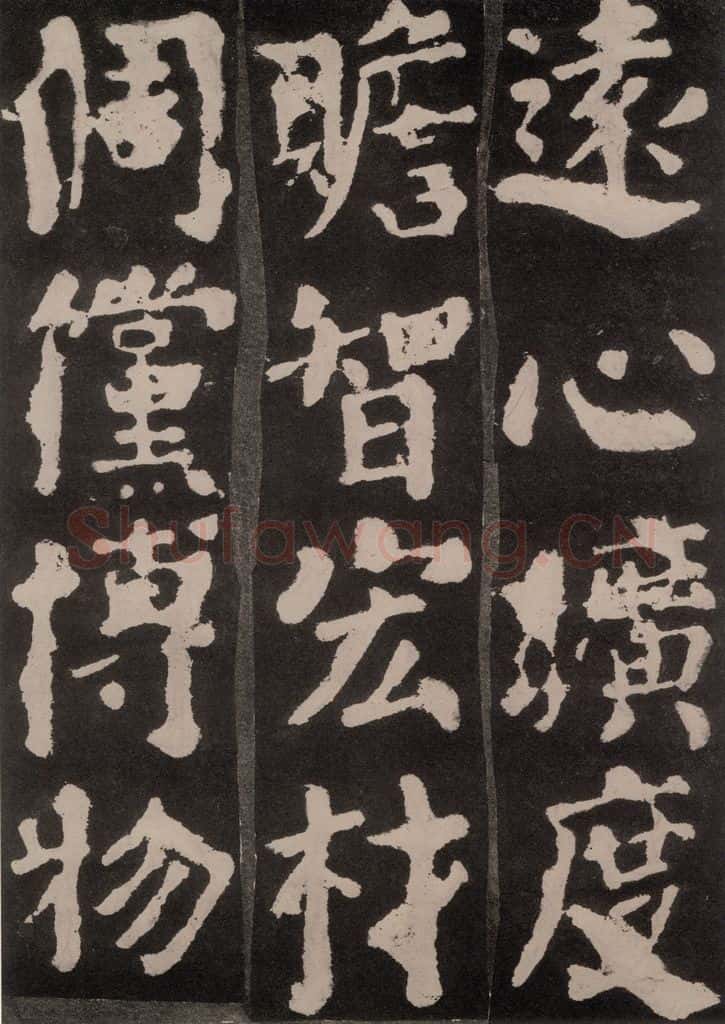 遠心曠度
贍智宏材
倜儻博物
Shufawang.CN